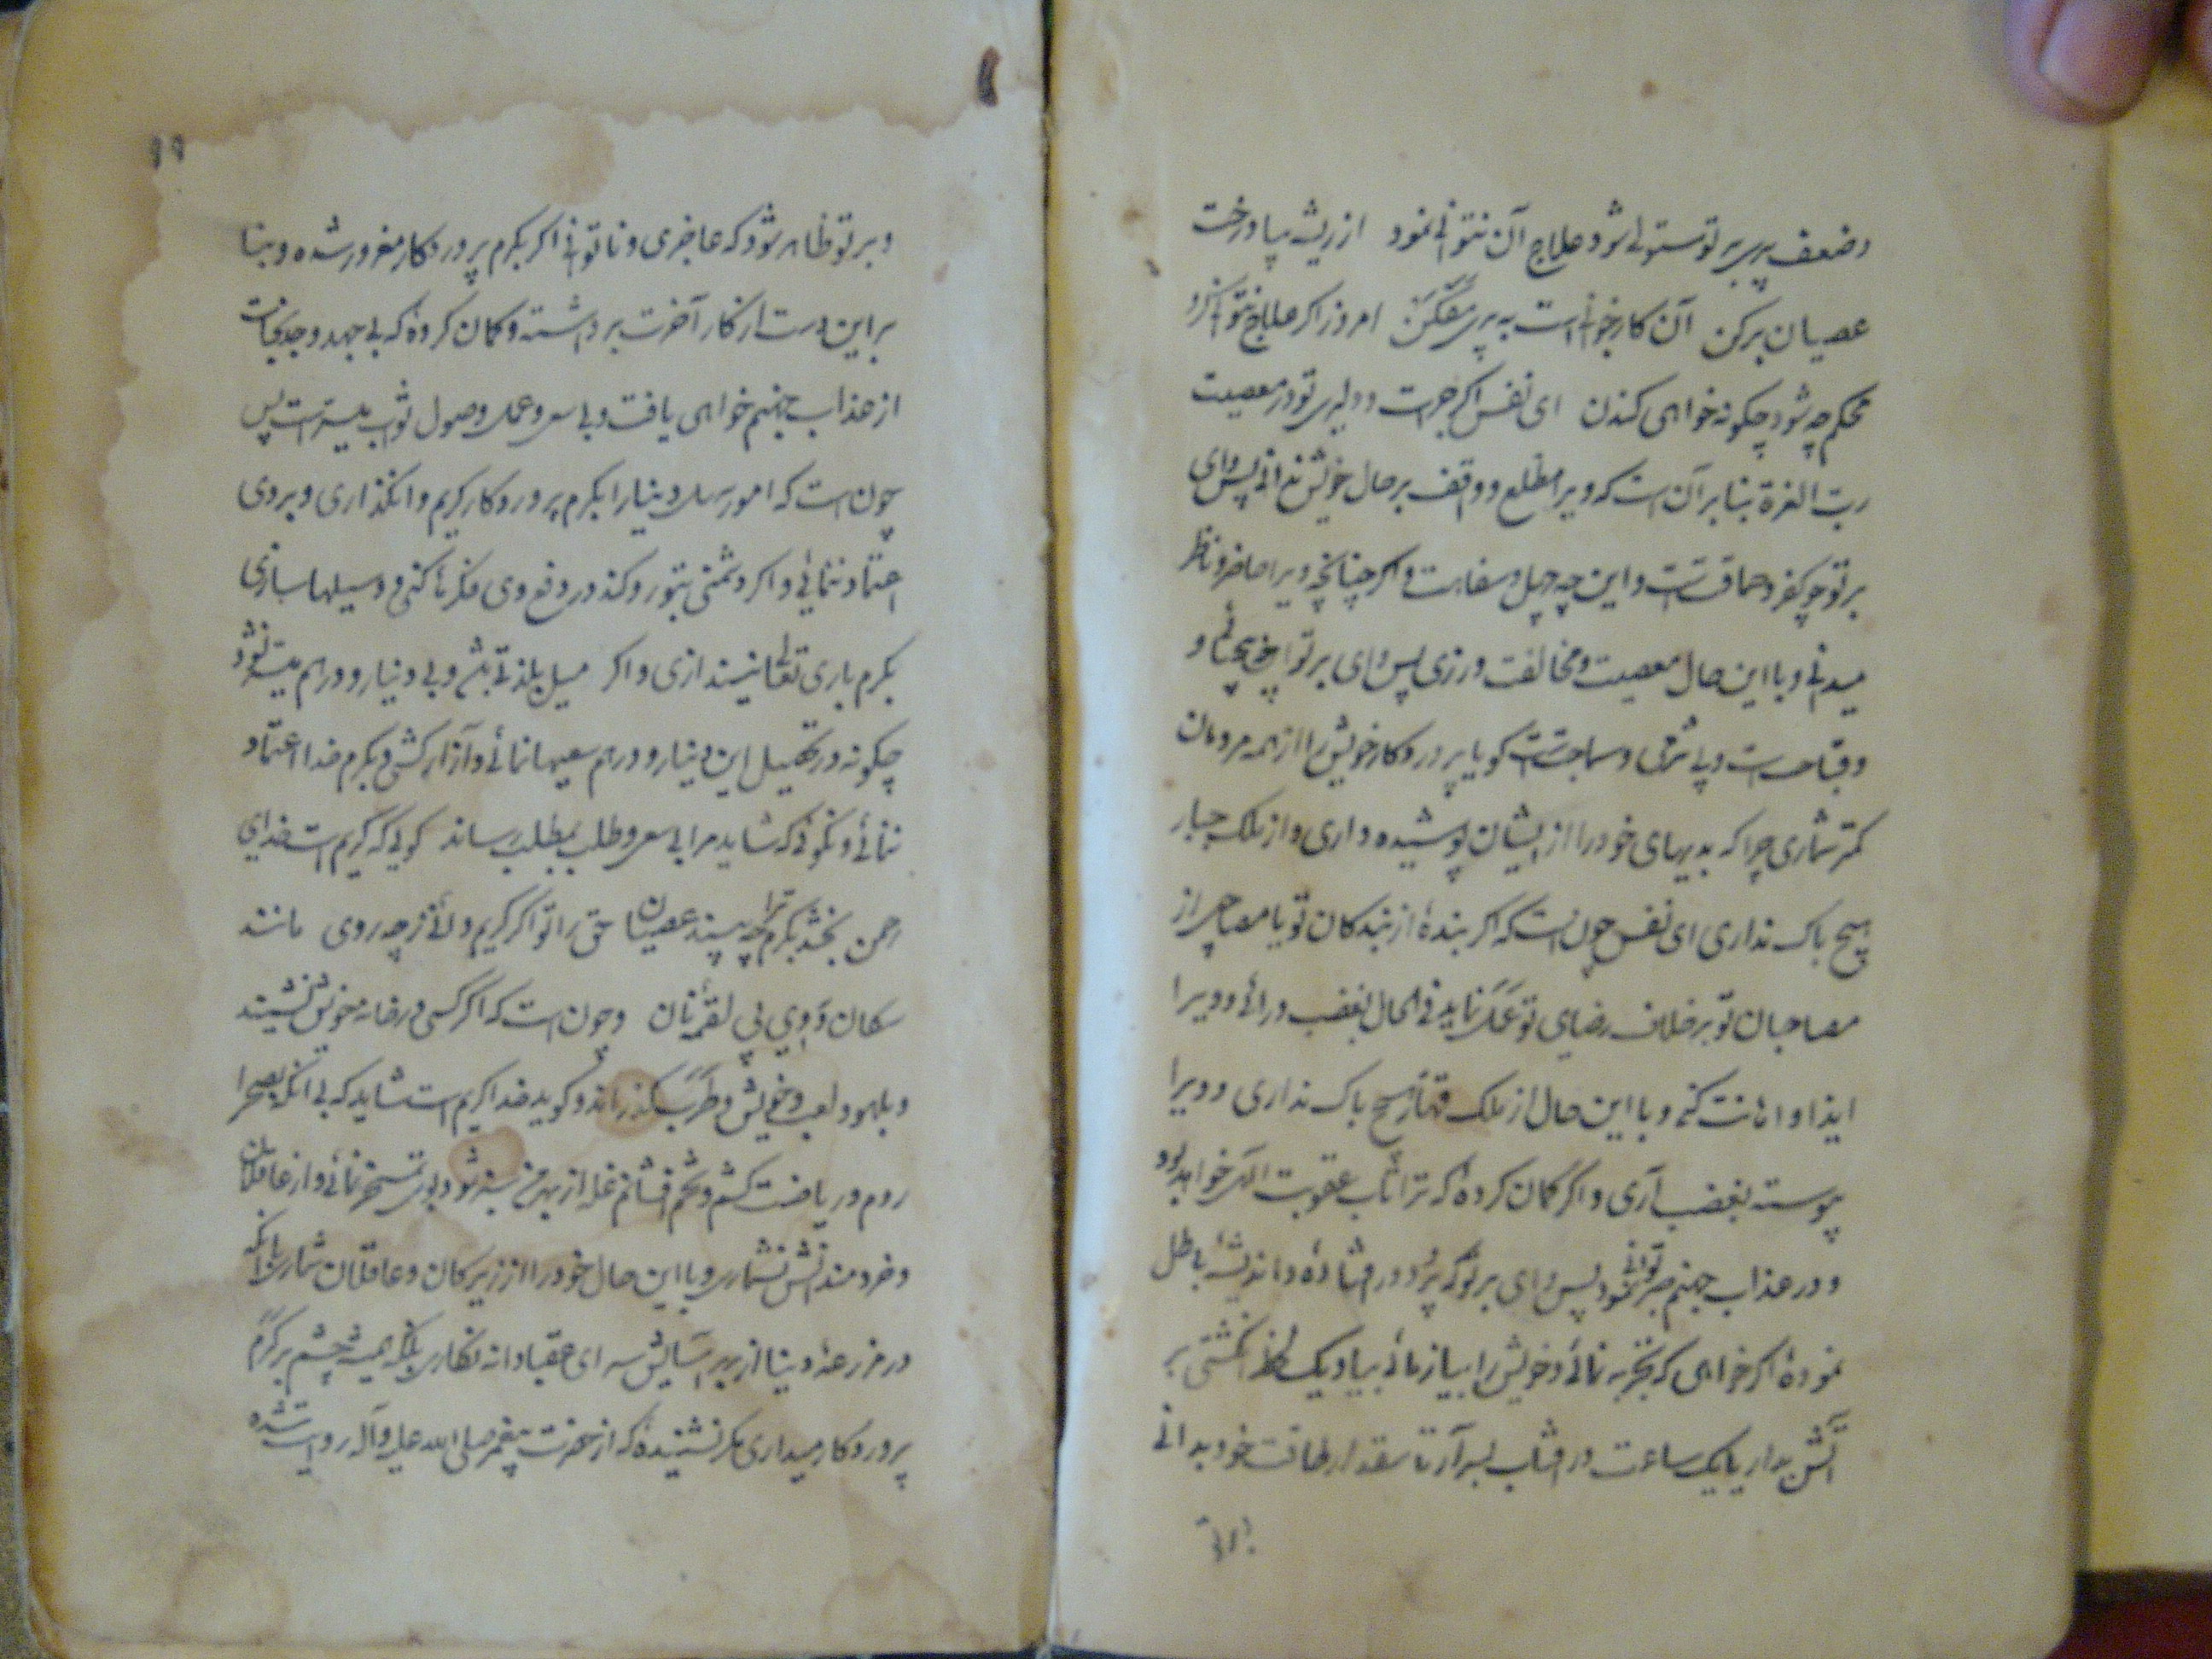 وضعف پیری بر تو مستولی شود علاج آن نتوانی نمود از ریشه بیا درخت
عصیان برکن آن کار جوانی است به پیری مفکن امروز اگر علاج نتوانی کرد
محکم چه شود چگونه خواهی کندن ای نفس اگر جرات و دلیری تو در معصیت
رب العزة بنابر آن است که ویرا مطلع و واقف بر حال خویش ندانی پس وای
بر تو چه کفر و حماقت است و این چه جهل و سفاهت و اگر چنانچه ویرا حاضر و ناظر
میدانی و با این حال معصیت و مخالفت ورزی پس وای بر تو این چه بیحیائی و
وقباحت و بی شرمی و سماجت است گویا پروردکار خویش را از همه مردمان
کمتر شماری چرا که بدیهای خود را از ایشان پوشیده داری و از ملک جبار
هیچ باک نداری ای نفس چون است که اگر بندهٔ از بندکان تو یا مصاحبی از
مصاحبان تو بر خلاف رضای تو عمل نماید فی الحال بغضب درائی و ویرا
ایذا و اهانت کنی و با این حال از ملک قهار هیچ باک نداری و ویرا
پیوسته بغضب آری و اگر کمان کردهٔ که ترا تاب عقوبت الهی خواهد بود
و در عذاب جهنم صبر توانی نمود پس وای بر تو که پر دور افتادهٔ و اندیشهٔ باطل
نمودهٔ اکر خواهی که تجربه نمائی و خویش را بیازمائی بیا و یک لحظه انگشتی بر
آتش بدار یا یک ساعت در افتاب بسر آر تا مقدار طاقت خود بدانی
و بر تو ظاهر شود که عاجزی و ناتوانی اکر بکرم پروردکار مغرور شده و بنا
بر این دست از کار آخرت برداشته و کمان کردهٔ که بی جهد و جد نجات
از عذاب جهنم خواهی یافت و بی سعی و عمل وصول ثواب میسر است پس
چون است که امور سهل دنیا را بکرم پروردکار کریم وانگذاری و بر وی
اعتماد ننمائی و اکر دشمنی بتو رو کند در دفع وی فکرها کنی و وسیلها سازی
بکرم باری تعالی نیندازی و اکر میل بلذتی باشد و بی دینار و درهم میسر نشود
چگونه در تحصیل این دینار و درهم سعیها نمائی و آزار کشی و بکرم خدا اعتماد
ننمائی و نگوئی که شاید مرا بی سعی و طلب بمطلب رساند کوئی که کریم است خدای
رحمن بخشد بکرم ترا چه بیند عصیان حق را تو اکر کریم دانی ز چه روی مانند
سکان دوی پی لقمهٔ نان و چون است که اگر کسی در خانه خویش نشیند
و بلهو و لعب و خویش و طرب بگذراند و کوید خدا کریم است شاید که بی آنکه بصحرا
روم و ریاضت کشم و تخم فشانم غله از بهر من سبز شود بر وی تسخر نمائی و از عاقلان
و خردمندانش نشماری و با این حال خود را از زیرکان و عاقلان شماری با آنکه
در مزرعهٔ دنیا از بهر آسایش سرای عقبا دانه نکاری بلکه همیشه چشم بر کرم
پروردکار میداری مکر نشنیدهٔ که از حضرت پیغمبر صلی الله علیه و آله روایت شده